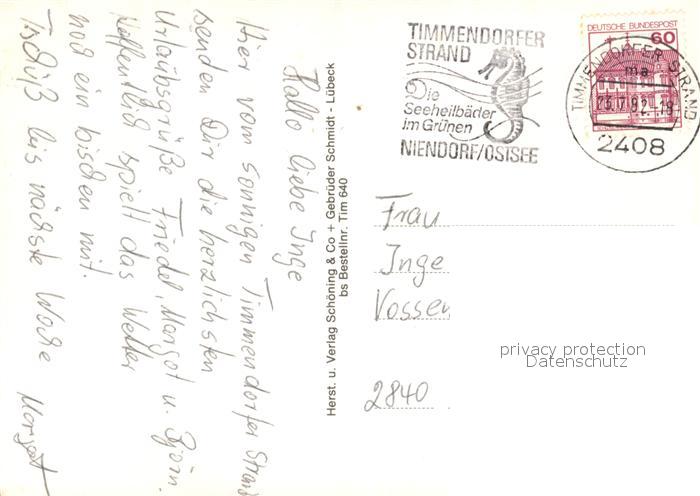 Hallo liebe Inge
Hier vom sonnigen Timmendorfer Strand
senden Dir die herzlichsten
Urlaubsgrüße Friedel, Margot u. Björn.
Hoffentlich spielt das Wetter
noch ein bischen mit.
Tschüß bis nächste Woche Margot
Herst. u. Verlag Schöning & Co + Gebrüder Schmidt - Lübeck
bs Bestellnr. Tim 640
TIMMENDORFER
STRAND
Die
Seeheilbäder
im Grünen
NIENDORF/OSTSEE
DEUTSCHE BUNDESPOST
60
TIMMENDORFER STRAND
ma
23.7.82-18
2408
Frau
Inge
Vossen
privacy protection
Datenschutz
2840